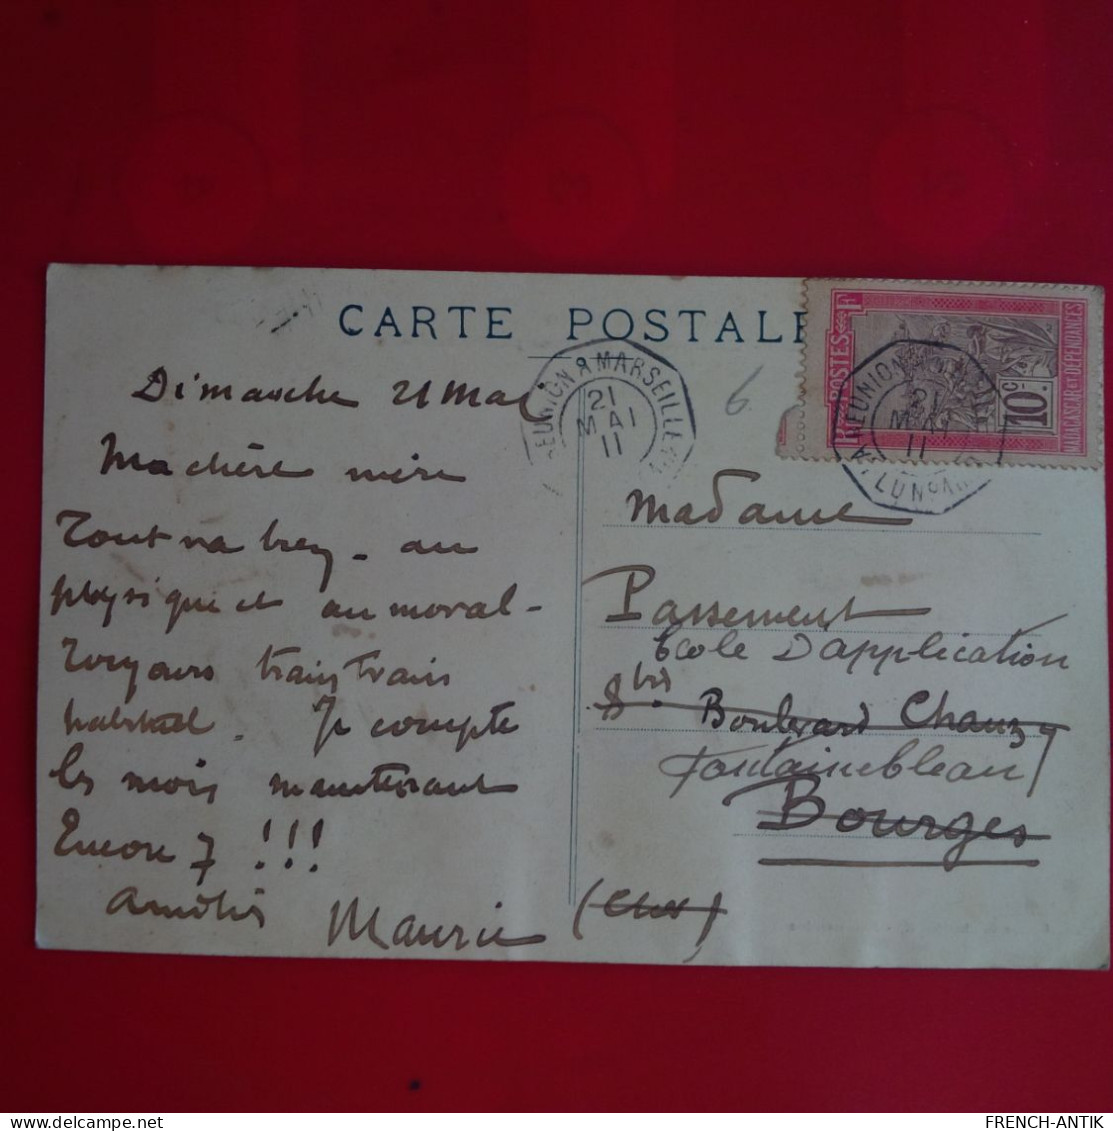 CARTE POSTALE
Dimanche 21 Mai
Ma chère mère
Tout va bien - au
physique et au moral -
Toujours train train
habituel. Je compte
les mois maintenant
Encore 7 !!!
Maurice
6
REUNION A MARSEILLE
21
MAI
11
REUNION A MARSEILLE
21
MAI
11
L U N°
POSTES
RF
10 c.
MADAGASCAR ET DÉPENDANCES
Madame
Passement
Ecole d'application
8 bis Boulevard Chanzy
Fontainebleau
Bourges
(Cher)
FRENCH-ANTIK